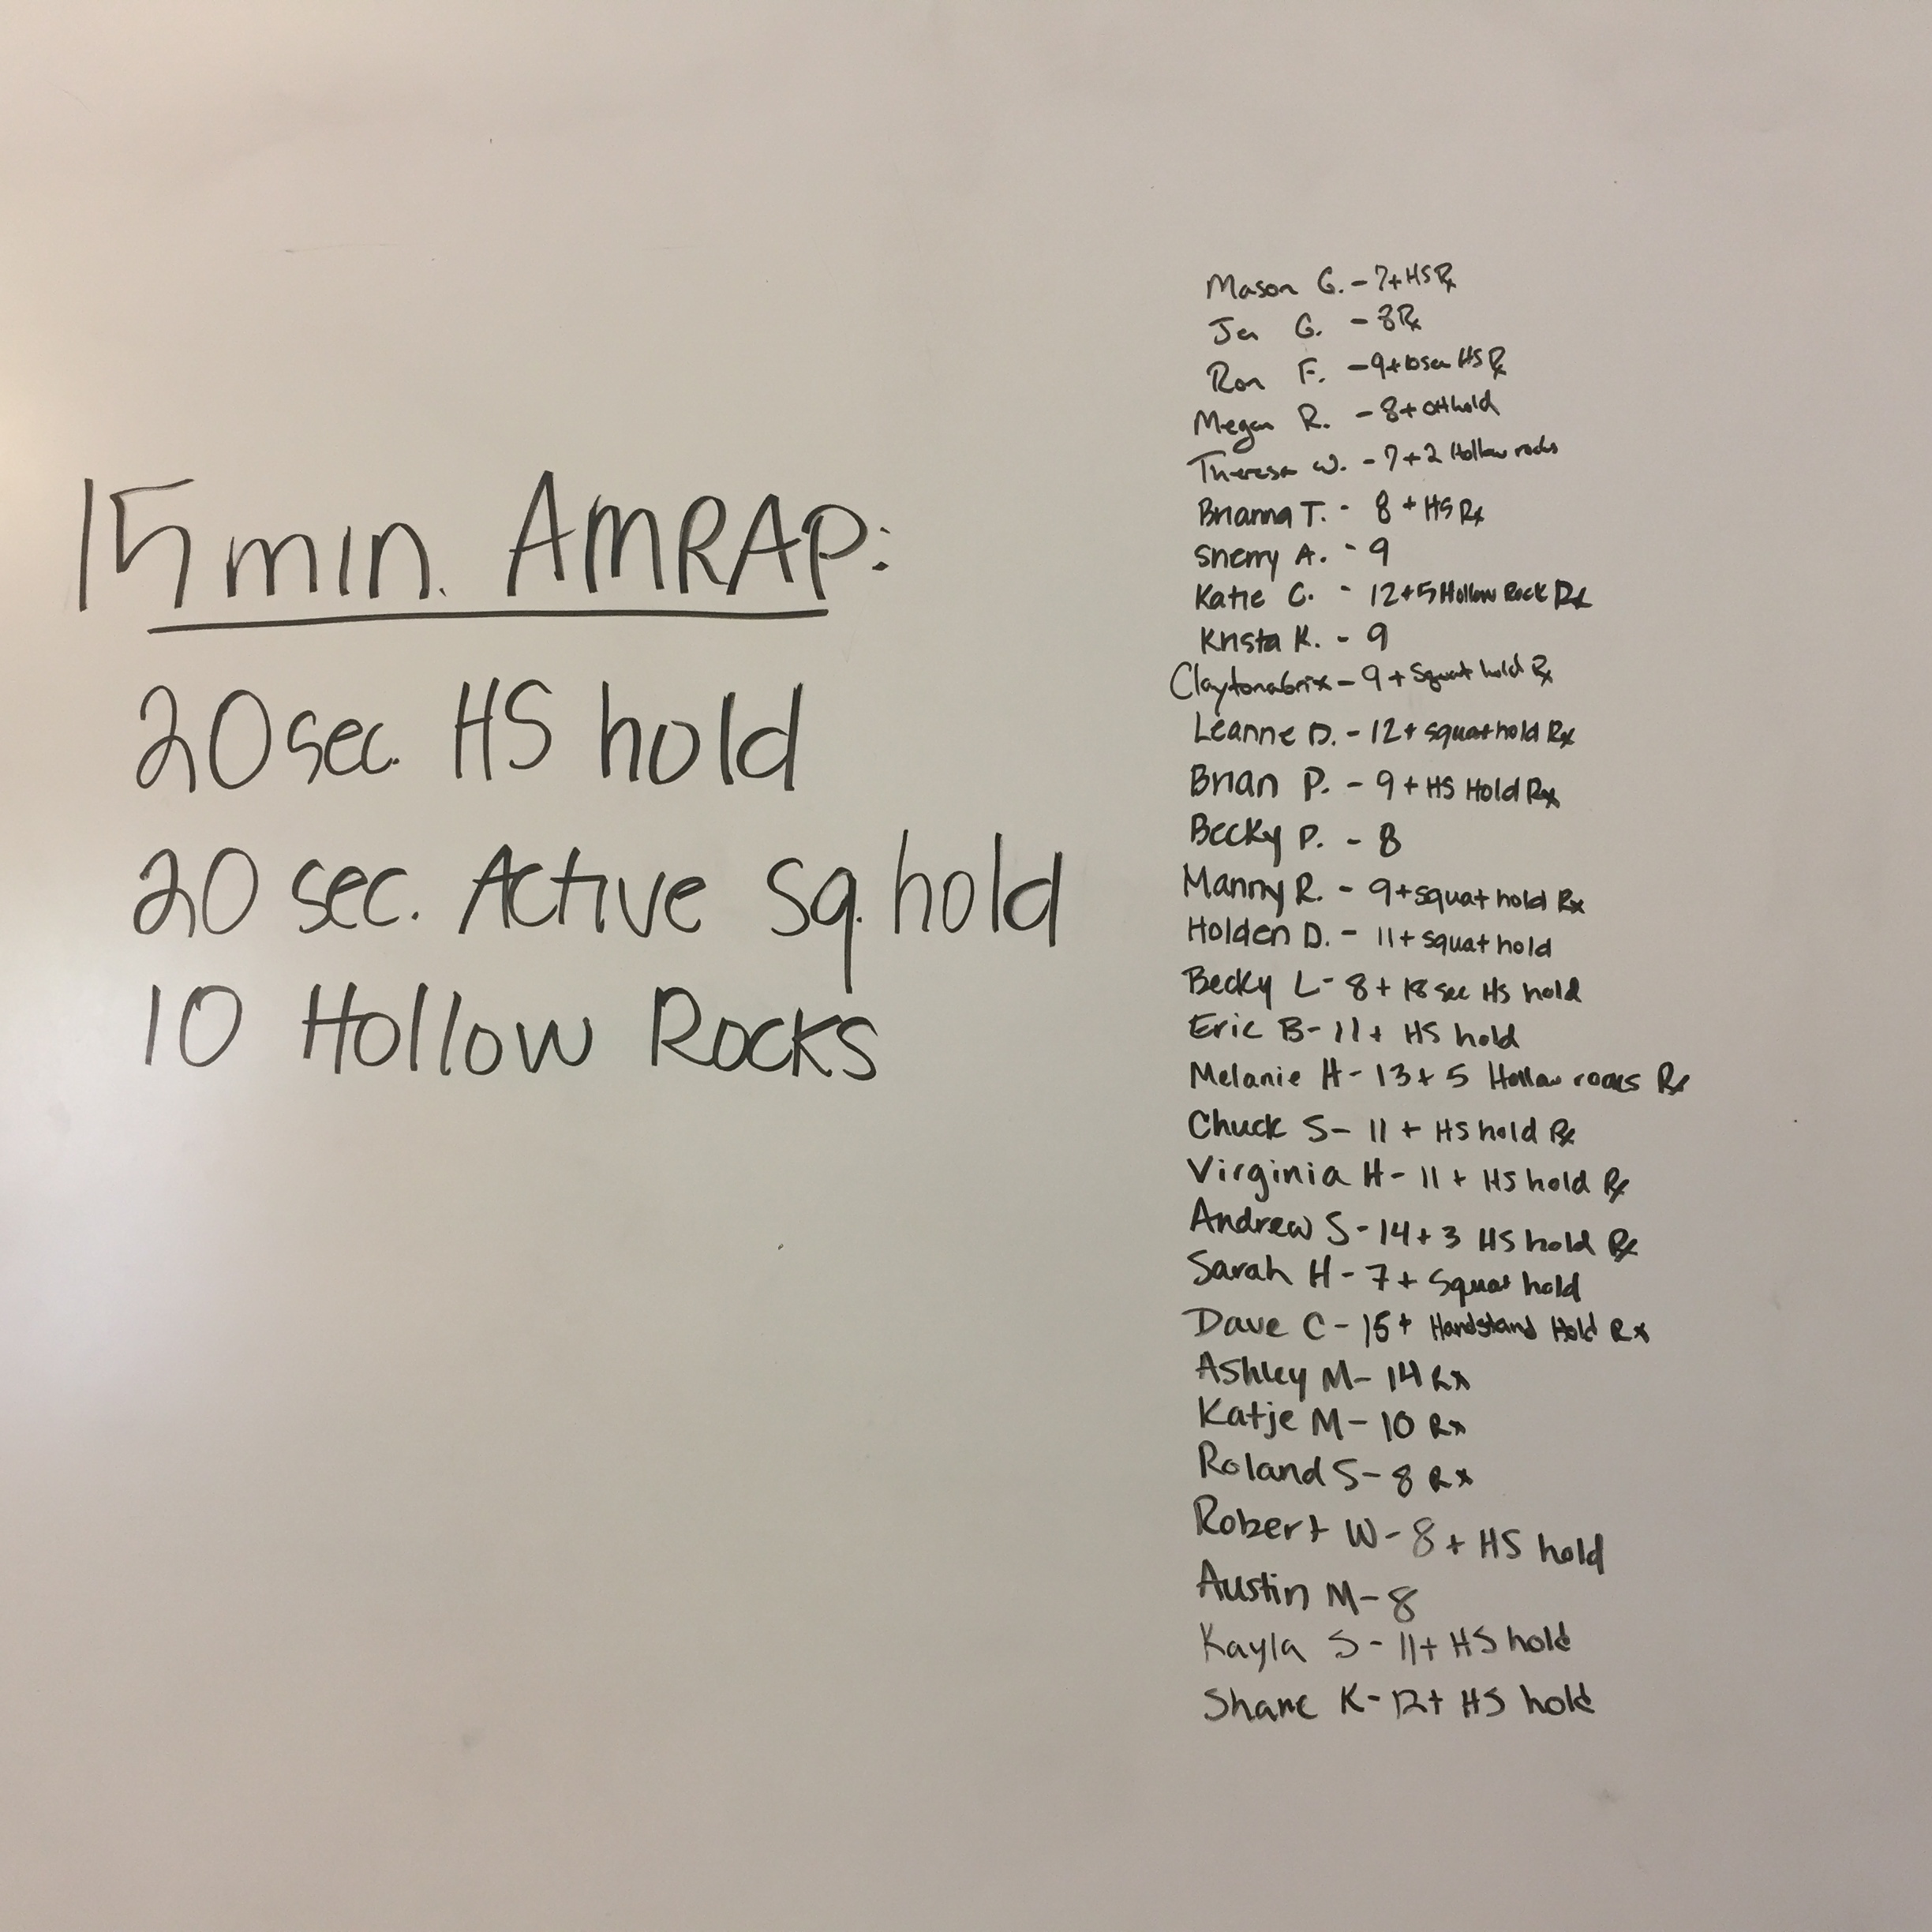 15 min. AMRAP:
20 sec. HS hold
20 sec. Active sq. hold
10 Hollow Rocks
Mason G. - 7+HS Rx
Jen G. - 8 Rx
Ron F. - 9+10sec HS Rx
Megan R. - 8+ OH hold
Theresa W. - 7+2 Hollow rocks
Brianna T. - 8 + HS Rx
Sherry A. - 9
Katie C. - 12+5 Hollow Rock Rx
Krista K. - 9
- 9 + Squat hold Rx
Leanne D. - 12+ squat hold Rx
Brian P. - 9 + HS Hold Rx
Becky P. - 8
Manny R. - 9+squat hold Rx
Holden D. - 11+ squat hold
Becky L- 8 + 18 sec HS hold
Eric B- 11+ HS hold
Melanie H- 13+ 5 Hollow rocks Rx
Chuck S- 11 + HS hold Rx
Virginia H- 11+ HS hold Rx
Andrew S- 14+ 3 HS hold Rx
Sarah H- 7+ Squat hold
Dave C- 15+ Handstand Hold Rx
Ashley M- 14 Rx
Katje M- 10 Rx
Roland S- 8 Rx
Robert W- 8+ HS hold
Austin M- 8
Kayla S- 11+ HS hold
Shane K- 12+ HS hold